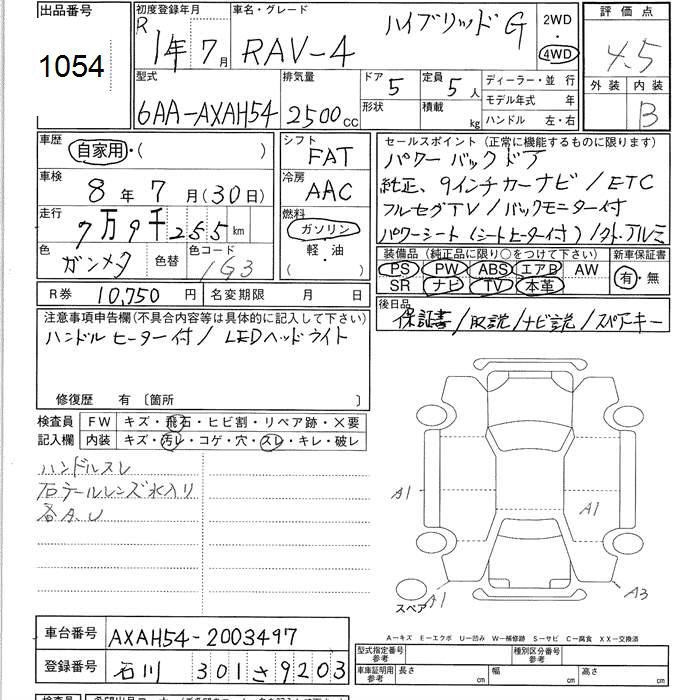 出品番号
1054
初度登録年月
R 1年 7月
車名・グレード
RAV-4 ハイブリッド G
2WD
4WD
評価点
4.5
外装 内装
B
型式
6AA-AXAH54
排気量
2500 CC
ドア 5
形状
定員 5 人
積載 kg
ディーラー・並 行
モデル年式 年
ハンドル 左・右
車歴
自家用・( )
車検
8 年 7 月(30日)
走行
7万9千255 km
色
ガンメタ
色替
色コード
1G3
シフト
FAT
冷房
AAC
燃料
ガソリン
軽・油
( )
セールスポイント(正常に機能するものに限ります)
パワーバックドア
純正、9インチカーナビ/ETC
フルセグTV/バックモニター付
パワーシート(シートヒーター付)/タト.アルミ
装備品(純正品に限り○をつけて下さい)
PS PW ABS エアB AW
SR ナビ TV 本革
新車保証書
有・無
R券 10,750 円
名変期限 月 日
後日品
保証書/取説/ナビ説/スペアキー
注意事項申告欄(不具合内容等は具体的に記入して下さい)
ハンドルヒーター付/LEDヘッドライト
修復歴 有 〔箇所 〕
検査員
記入欄
FW キズ・飛石・ヒビ割・リペア跡・×要
内装 キズ・汚レ・コゲ・穴・スレ・キレ・破レ
ハンドルスレ
右テールレンズ水入り
各A.U
A1
A1
A1
A3
スペア
A-キズ E-エクボ U-凹み W-補修跡 S-サビ C-腐食 XX-交換済
車台番号 AXAH54-2003497
登録番号 石川 301 さ 9203
型式指定番号
参考
種別区分番号
参考
車庫証明用
参考
長さ cm
幅 cm
高さ cm